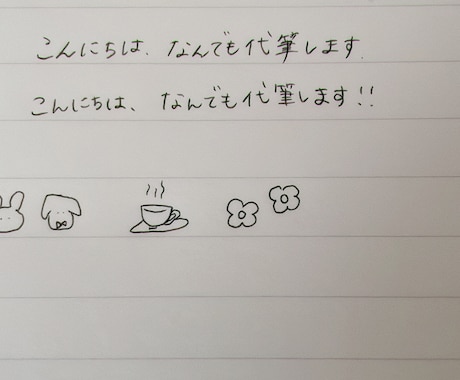 こんにちは、なんでも代筆します.
こんにちは、なんでも代筆します!!